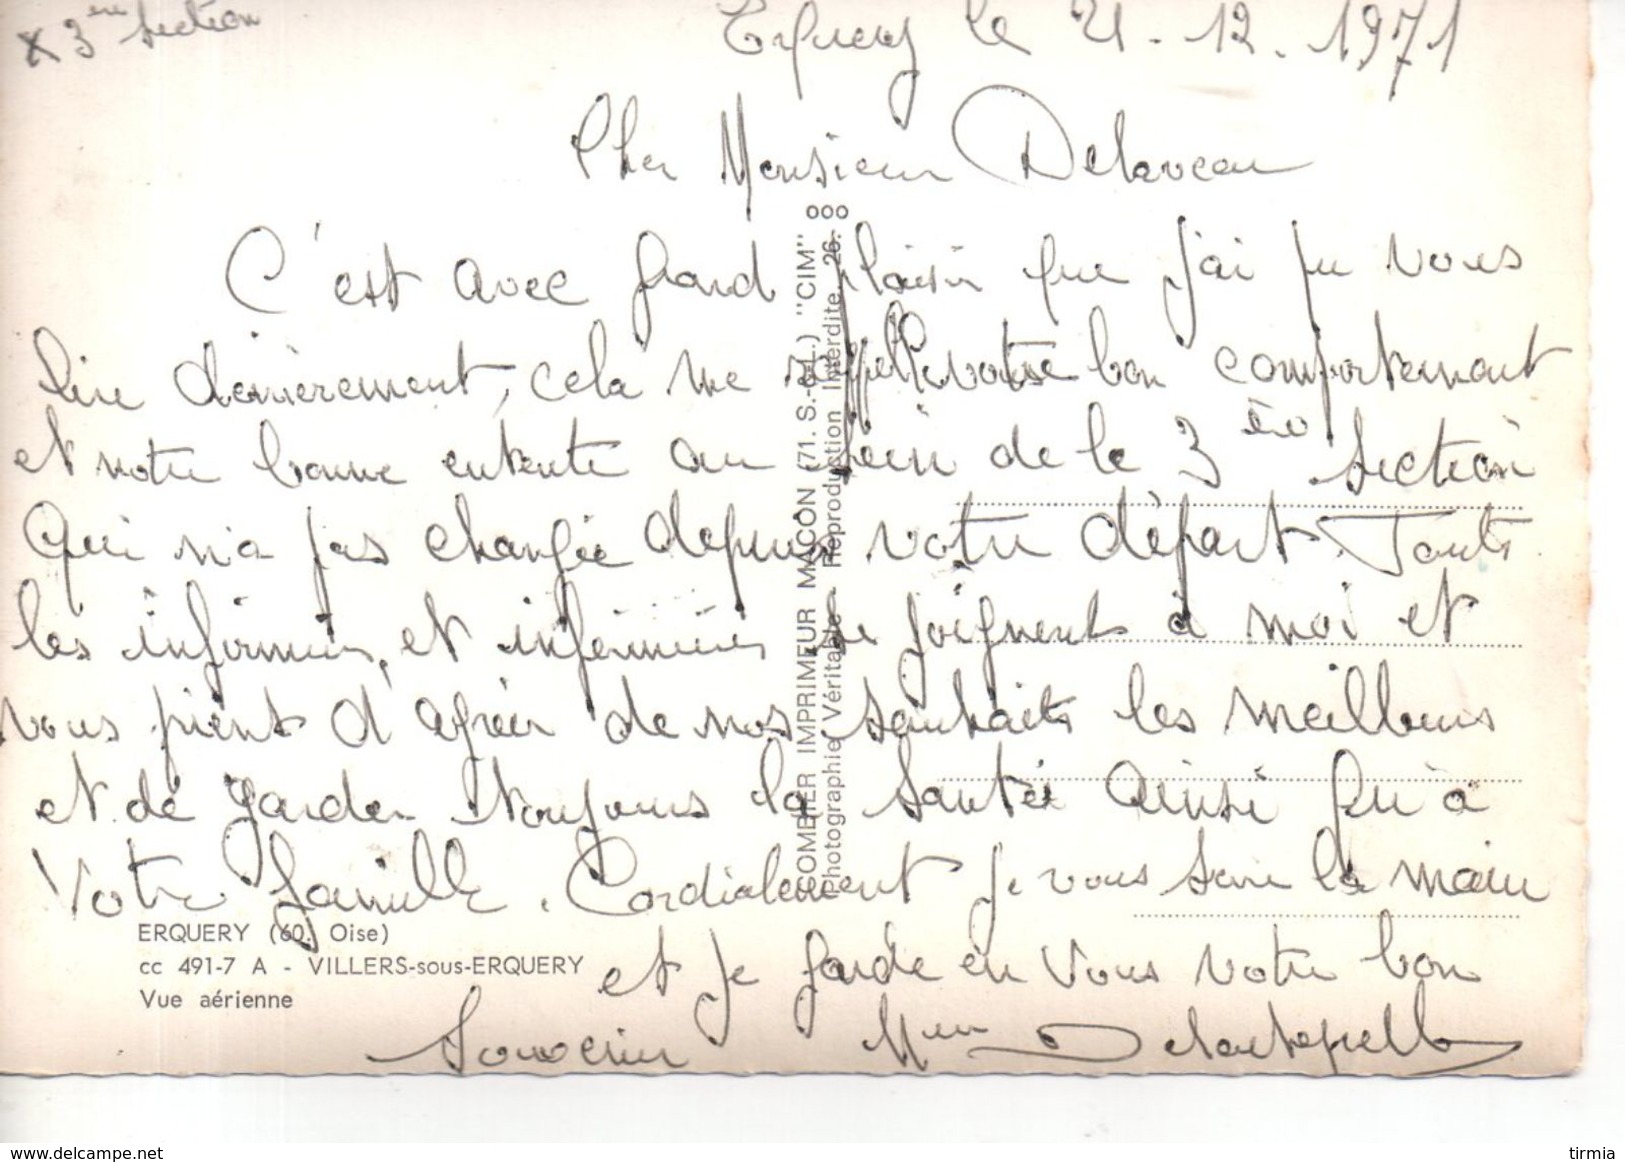 x 3ème Section
Erquery le 21-12-1971
Cher Monsieur Delaveau
C'est avec grand plaisir que j'ai pu vous
lire dernièrement, cela me rappelle votre bon comportement
et notre bonne entente au sein de la 3ème Section
qui n'a pas changée depuis votre départ. Touts
les infirmiers, et infirmières se joignent à moi et
vous prient d'agréer de nos souhaits les meilleurs
et de garder toujours la santée ainsi qu'à
votre famille. Cordialement je vous serre la main
et je garde en vous votre bon
Souvenir
COMBIER IMPRIMEUR MACON (71. S.-&-L.) "CIM"
Photographie Véritable - Reproduction Interdite 26. 000
ERQUERY (60. Oise)
cc 491-7 A - VILLERS-sous-ERQUERY
Vue aérienne
www.delcampe.net
tirmia